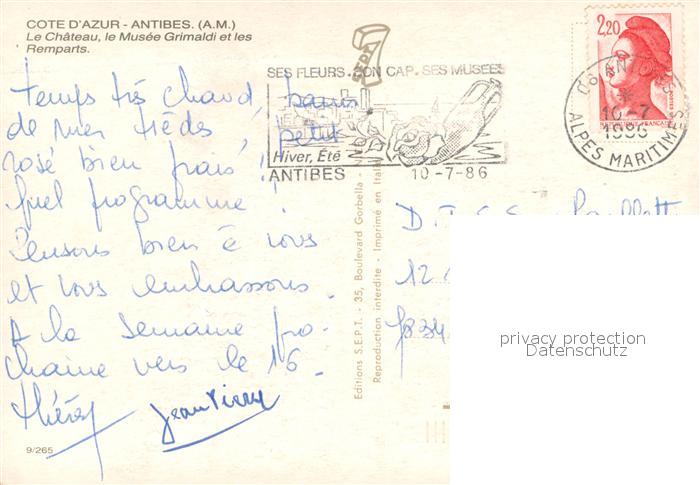 COTE D'AZUR - ANTIBES. (A.M.)
Le Château, le Musée Grimaldi et les
Remparts.
Temps très chaud, bains
de mer tièdes, petit
rosé bien frais !!
quel programme !
Pensons bien à vous
et vous embrassons.
A la semaine pro-
chaine vers le 16.
Jean Pierre
9/265
SEPT
Editions S.E.P.T. - 35, Boulevard Gorbella -
Reproduction interdite - Imprimé en Ital
SES FLEURS. SON CAP. SES MUSÉES
Hiver, Été
ANTIBES 10-7-86
2,20
REPUBLIQUE FRANÇAISE
06 ANTIBES
10-7
1986
ALPES MARITIMES
12
privacy protection
Datenschutz